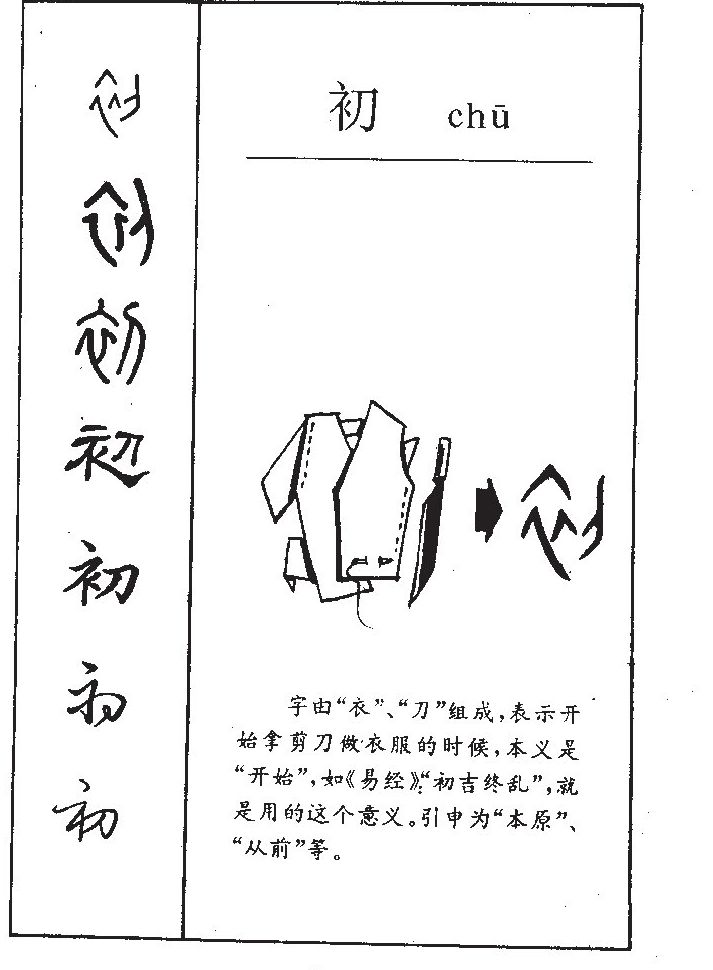 初 chū
初
初
初
初
初
初
初
初
字由“衣”、“刀”组成，表示开
始拿剪刀做衣服的时候，本义是
“开始”，如《易经》：“初吉终乱”，就
是用的这个意义。引申为“本原”、
“从前”等。